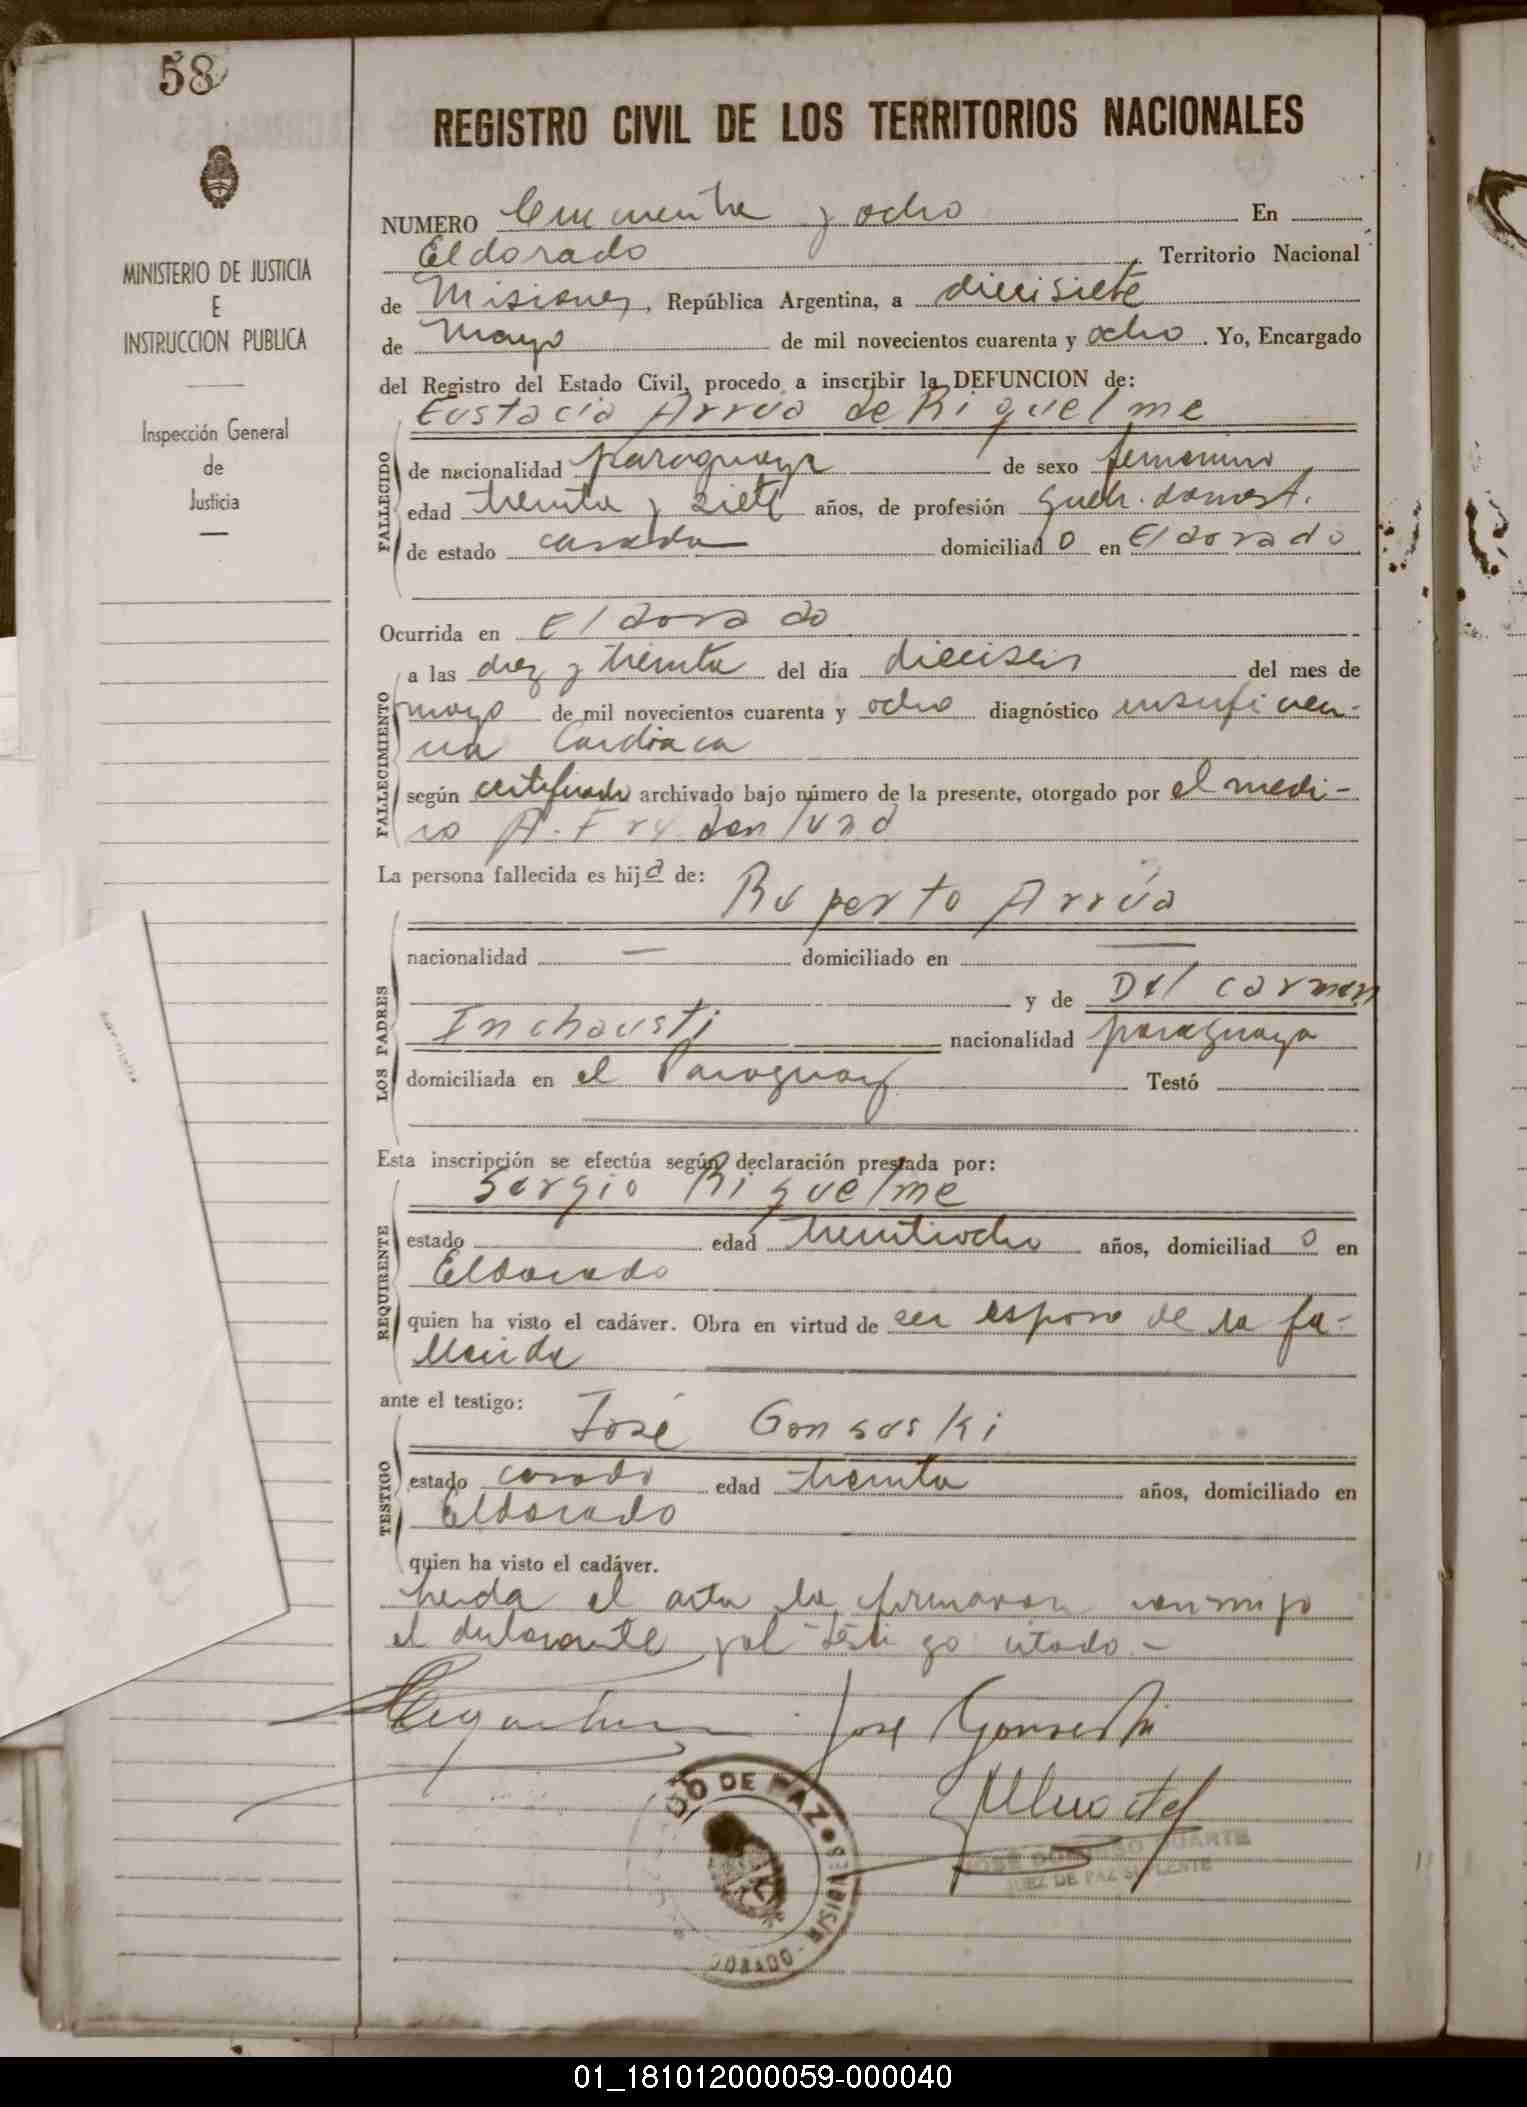 58
REGISTRO CIVIL DE LOS TERRITORIOS NACIONALES
MINISTERIO DE JUSTICIA
E
INSTRUCCION PUBLICA
Inspección General
de
Justicia
NUMERO Cincuenta y ocho En
Eldorado Territorio Nacional
de Misiones, República Argentina, a diecisiete
de Mayo de mil novecientos cuarenta y ocho. Yo, Encargado
del Registro del Estado Civil, procedo a inscribir la DEFUNCION de:
Eustacia Arrúa de Riquelme
FALLECIDO
de nacionalidad paraguaya de sexo femenino
edad treinta y siete años, de profesión queh. domest.
de estado casada domiciliado en Eldorado
Ocurrida en Eldorado
FALLECIMIENTO
a las diez y treinta del día dieciseis del mes de
mayo de mil novecientos cuarenta y ocho diagnóstico insuficien-
cia Cardiaca
según certificado archivado bajo número de la presente, otorgado por el medi-
co A. Frydenlund
La persona fallecida es hija de:
Ruperto Arrúa
LOS PADRES
nacionalidad — domiciliado en —
y de Del Carmen
Inchausti nacionalidad paraguaya
domiciliada en el Paraguay Testó
Esta inscripción se efectúa según declaración prestada por:
Sergio Riquelme
REQUIRENTE
estado edad treintiocho años, domiciliado en
Eldorado
quien ha visto el cadáver. Obra en virtud de ser esposo de la fa-
llecida
ante el testigo:
José Gonseski
TESTIGO
estado casado edad treinta años, domiciliado en
Eldorado
quien ha visto el cadáver.
Leida el acta la firmaron conmigo
el declarante y el testigo citado.-
José
DO DE PAZ
MISIONES
DORADO
JOSE DOMINGO DUARTE
JUEZ DE PAZ SUPLENTE
01_181012000059-000040